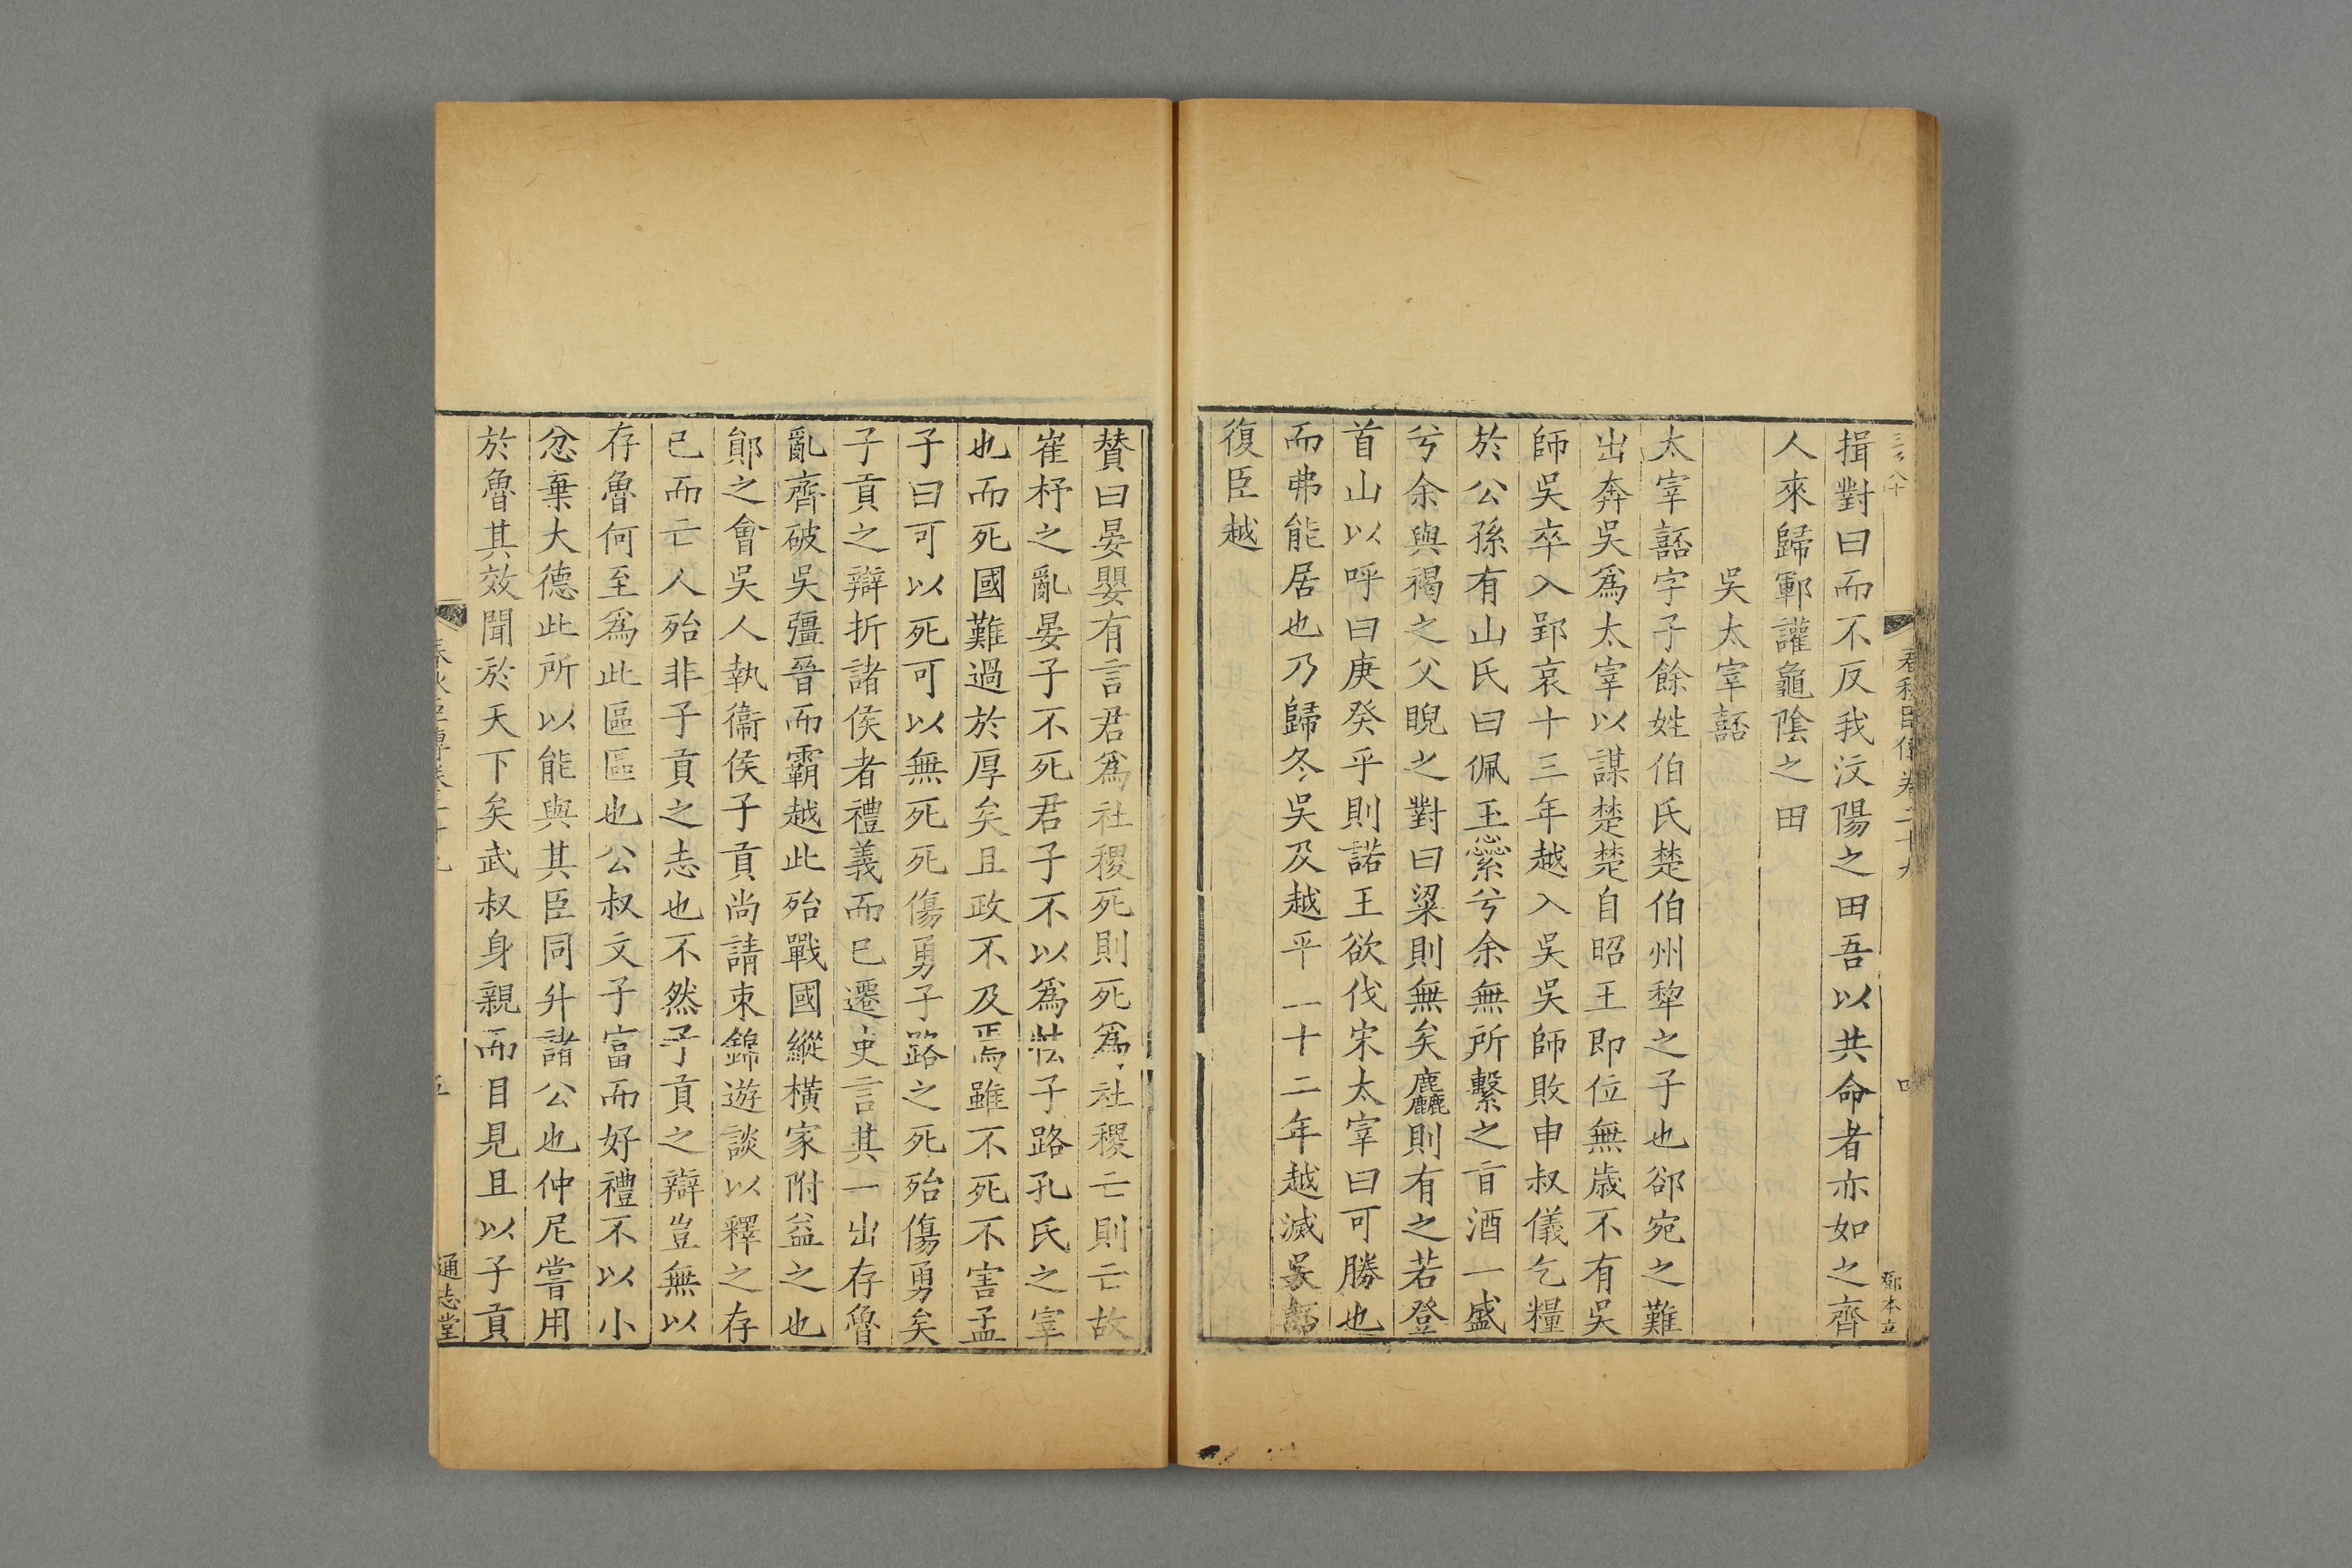 春秋臣傳卷二十九
四
鄧本立
揖對曰而不反我汶陽之田吾以共命者亦如之齊
人來歸鄆讙龜陰之田
吳太宰嚭
太宰嚭字子餘姓伯氏楚伯州犂之子也郤宛之難
出奔吳爲太宰以謀楚楚自昭王即位無歲不有吳
師吳卒入郢哀十三年越入吳吳師敗申叔儀乞糧
於公孫有山氏曰佩玉繠兮余無所繫之旨酒一盛
兮余與褐之父睨之對曰粱則無矣麤則有之若登
首山以呼曰庚癸乎則諾王欲伐宋太宰曰可勝也
而弗能居也乃歸冬吳及越平二十二年越滅吳嚭
復臣越
賛曰晏嬰有言君爲社稷死則死爲社稷亡則亡故
崔杼之亂晏子不死君子不以爲怯子路孔氏之宰
也而死國難過於厚矣且政不及焉雖不死不害孟
子曰可以死可以無死死傷勇子路之死殆傷勇矣
子貢之辯折諸侯者禮義而已遷史言其一出存魯
亂齊破吳彊晉而霸越此殆戰國縱橫家附益之也
鄖之會吳人執衞侯子貢尚請束錦遊談以釋之存
已而亡人殆非子貢之志也不然子貢之辯豈無以
存魯何至爲此區區也公叔文子富而好禮不以小
忿棄大德此所以能與其臣同升諸公也仲尼嘗用
於魯其效聞於天下矣武叔身親而目見且以子貢
春秋臣傳卷二十九
五
通志堂